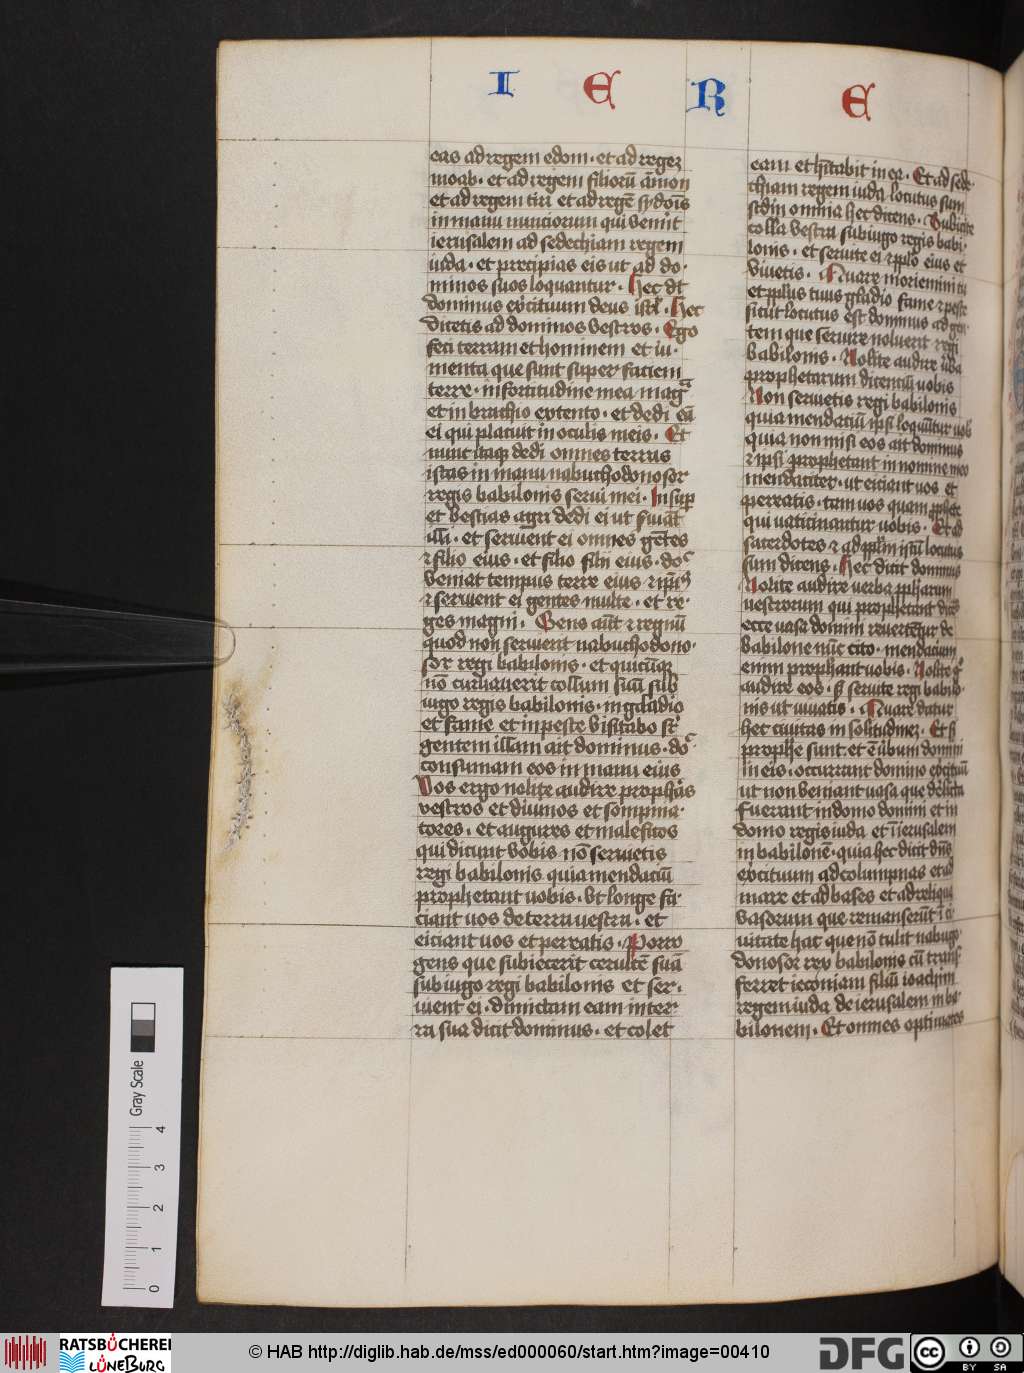 I E R E
eas ad regem edom · et ad regez
moab · et ad regem filiorū āmon
et ad regem tiri et ad regē sydoīs
in manu nunciorum qui venīt
ierusalem ad sedechiam regem
iuda · et precipias eis ut ad do·
minos suos loquantur · Hec dt̄
dominus exꝰcituum deus isrl̄ · Hec
dicetis ad dominos vestros · Ego
feci terram et hominem et iu·
menta que sunt super faciem
terre · in fortitudine mea magͣ
et in brachio extento · et dedi eā
ei qui placuit in oculis meis · Et
nunc itaqꝫ dedi omnes terras
istas in manu nabuchodonosor
regis babilonis serui mei · Insuꝑ
et bestias agri dedi ei ut fuiāt
illi · et seruient ei omnes gētes
⁊ filio eius · et filio filii eius · doͨ
veniat tempus terre eius ⁊ ip̄iꝰ
⁊ seruient ei gentes multe · et re·
ges magni · Gens aūt ⁊ regnū
quod non seruierit nabuchodono·
sor regi babilonis · et quicūqꝫ
nō curuauerit collum suū sub
iugo regis babilonis · in gladio
et fame et in peste visitabo sͬ
gentem illam ait dominus · doͨ
consumam eos in manu eius
Vos ergo nolite audire prophās
vestros et diuinos et sompnia·
tores · et augures et maleficos
qui dicunt vobis nō seruietis
regi babilonis quia mendaciū
prophetant uobis · vt longe fa·
ciant uos de terra uestra · et
eiciant uos et pereatis · Porro
gens que subiecerit ceruicē suā
sub iugo regi babilonis et ser·
uient ei · dimictam eam in ter·
ra sua dicit dominus · et colet
eam et hītabit in ea · Et ad sede·
chiam regem iuda locutus sum
scdm omnia hec dicens · Subicite
colla vestra sub iugo regis babi·
lonis · et seruite ei ⁊ pplo eius et
viuetis · Quare moriemini tu
et pplus tuus gladio fame ⁊ peste
sicut locutus est dominus ad gen·
tem que seruire noluerit regi
babilonis · Nolite audire ūba
prophetarum dicentiū uobis
Non seruietis regi babilonis
quia mendaciū ip̄si loquūtur uob
quia non misi eos ait dominus
⁊ ip̄si prophetant in nomine meo
mendaciter · ut eiciant uos et
pereatis · tam uos quam pphete
qui uaticinantur uobis · Et ad
sacerdotes ⁊ ad pplm istū locutus
sum dicens · Hec dicit dominus
Nolite audire verba ppharum
uestrorum qui prophetant dicēs
ecce uasa domini reuertētur de
babilone nūc cito · mendacium
enim prophant uobis · Nolite gͦ
audire eos · sꝫ seruite regi babilo·
nis ut uiuatis · Quare datur
hec ciuitas in solitudinez · Et si
prophe sunt · et ē ūbum domini
in eis · occurrant domino exꝰcituū
ut non veniant uasa que delicta
fuerant in domo domini et in
domo regis iuda et ī ierusalem
in babilonē · quia hec dicit dn̄s
exꝰcituum ad columpnas et ad
mare et ad bases et ad reliqua
vasorum que remanserūt ī ci
uitate hac que nō tulit nabugo·
donosor rex babilonis cū trans·
ferret ieconiam filiū ioachim
regem iuda de ierusalem in ba·
bilonem · Et omnes optimates
Gray Scale
4
3
2
1
0
RATSBÜCHEREI
LÜNEBURG
© HAB http://diglib.hab.de/mss/ed000060/start.htm?image=00410
DFG
cc
BY SA